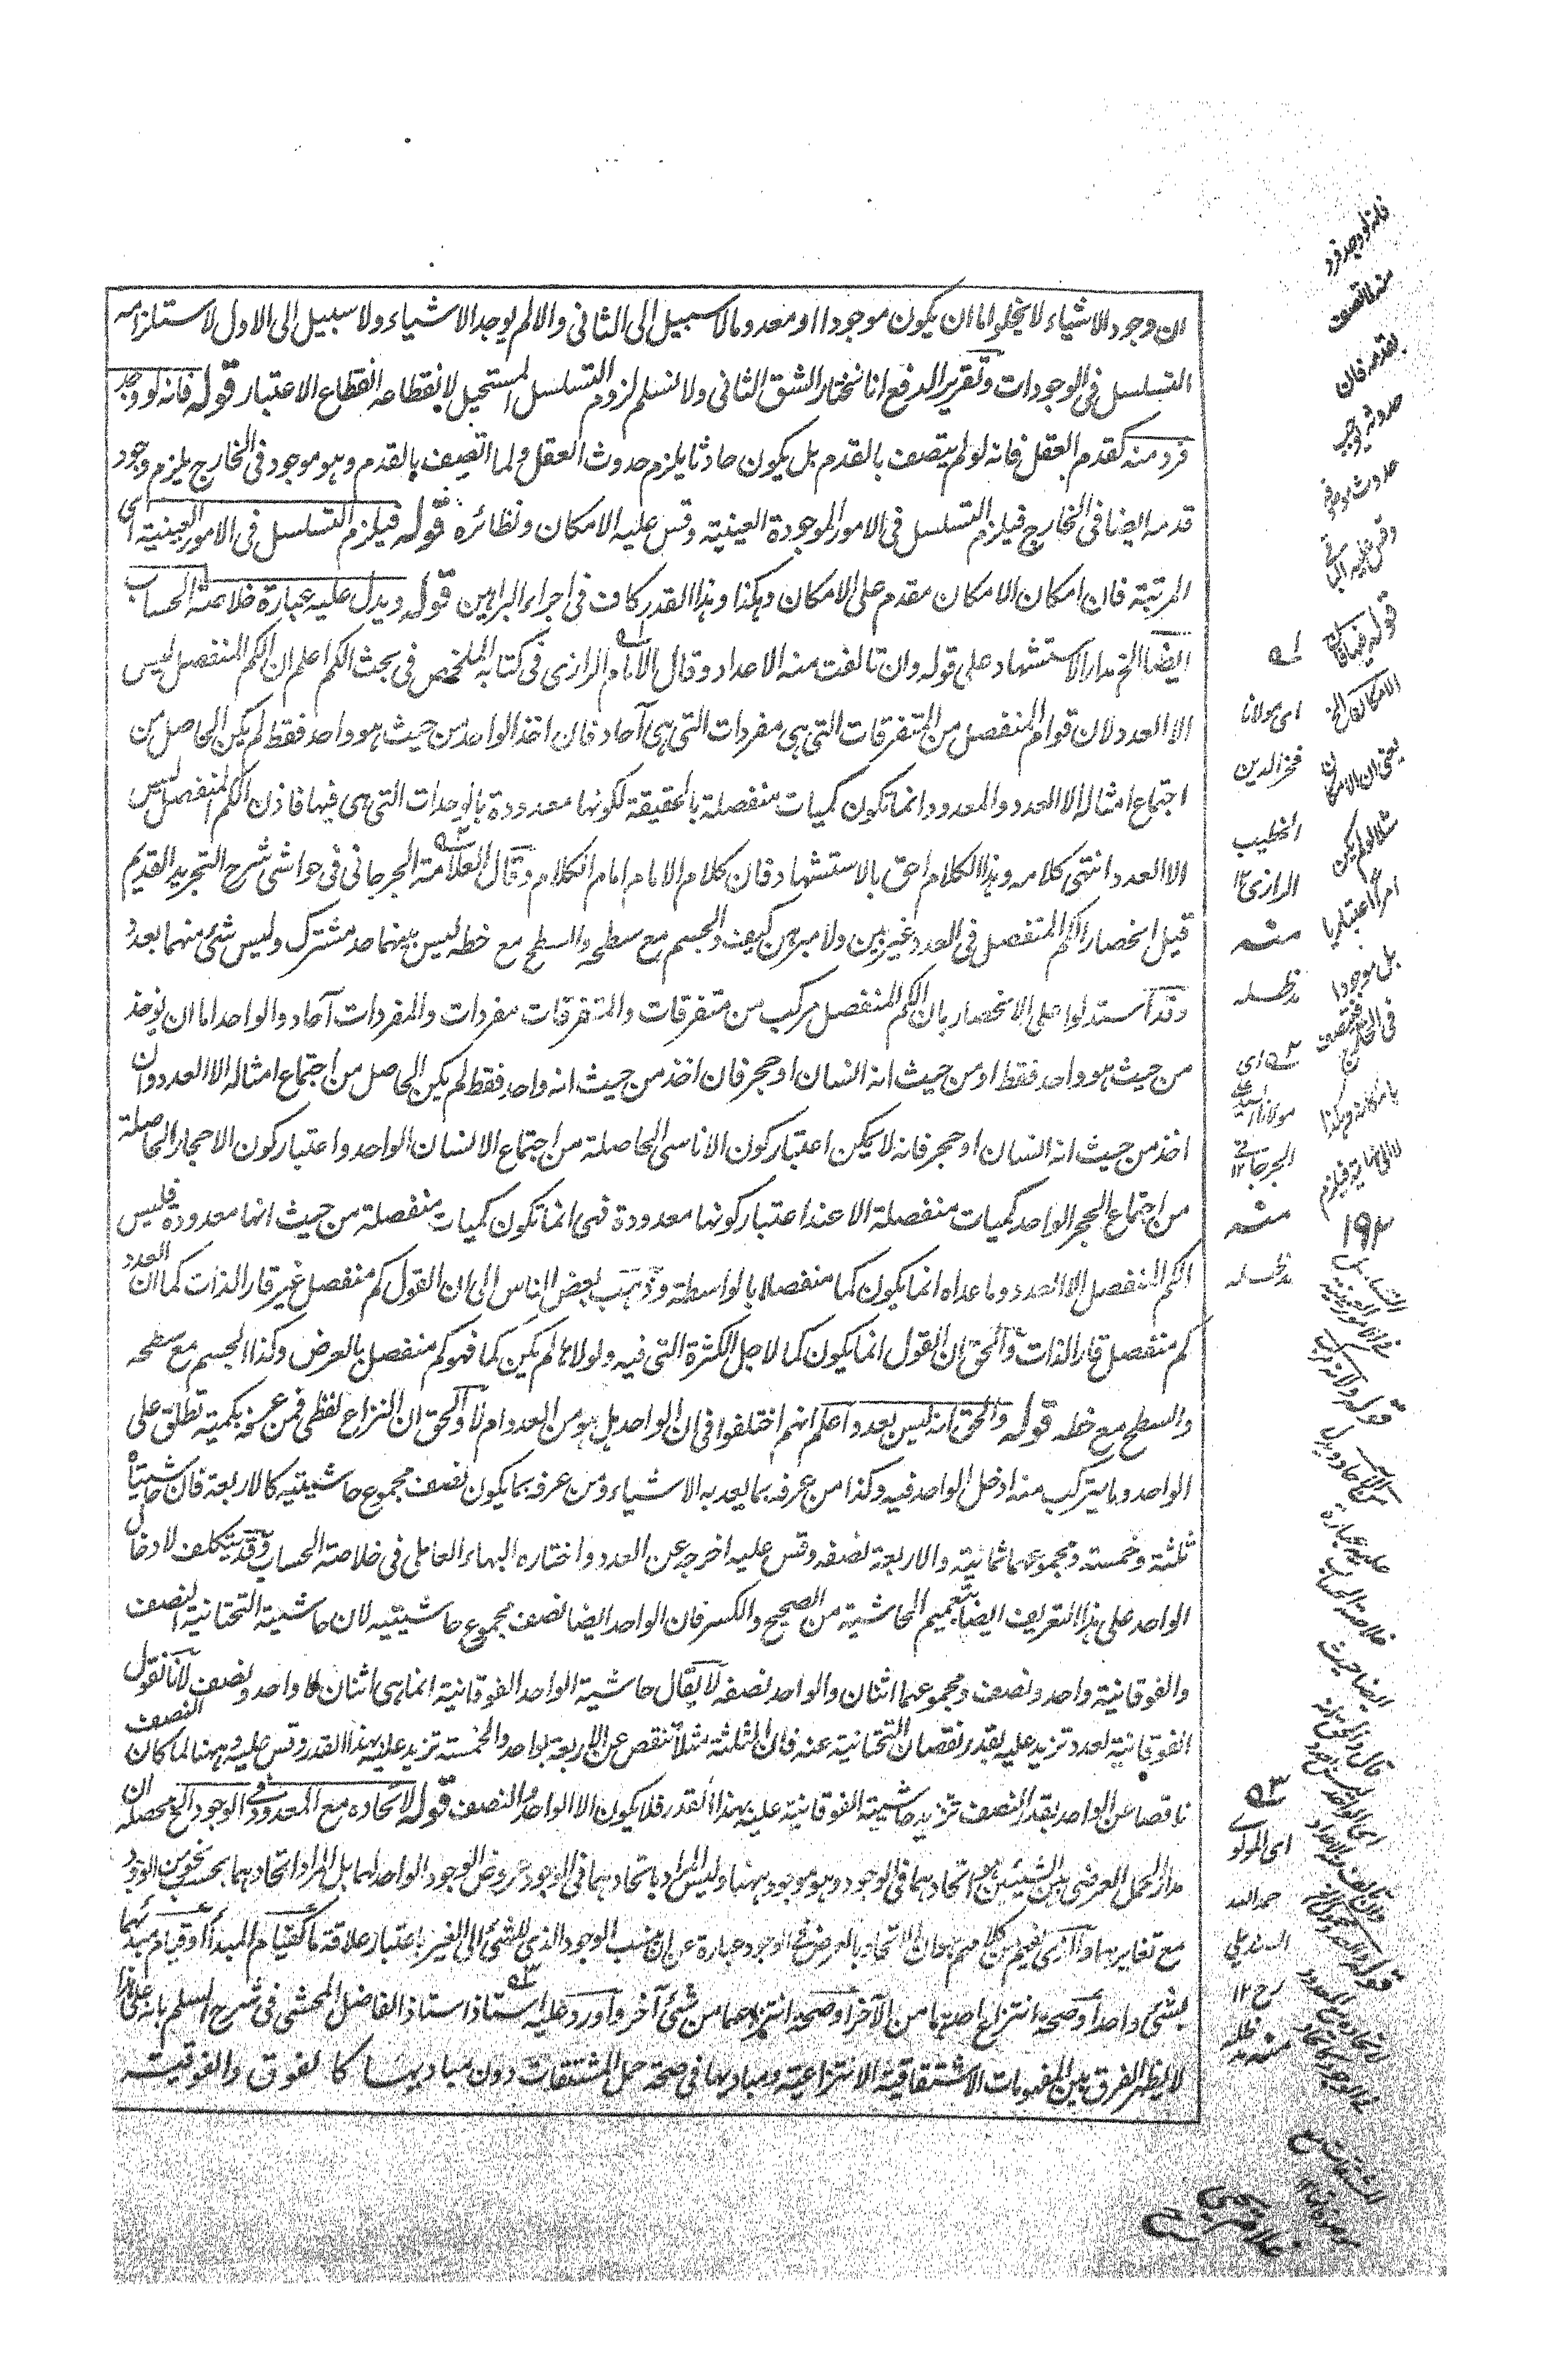 ان وجود الاشياء لا يخلو اما ان يكون موجودا او معدوما لا سبيل الى الثانى والا لم يوجد الاشياء ولا سبيل الى الاول لاستلزامه
التسلسل فى الوجودات وتقرير الدفع انا نختار الشق الثانى ولا نسلم لزوم التسلسل المستحيل لانقطاعه انقطاع الاعتبار قوله فانه لو وجد
فرد منه كقدم العقل فانه لو لم يتصف بالقدم بل يكون حادثا يلزم حدوث العقل ولما اتصف بالقدم وهو موجود فى الخارج يلزم وجود
قدمه ايضا فى الخارج فيلزم التسلسل فى الامور الموجودة العينية وقس عليه الامكان ونظائره قوله فيلزم التسلسل فى الامور العينية اى
المرتبة فان امكان الامكان مقدم على الامكان وهكذا وهذا القدر كاف فى اجراء البراهين قوله ويدل عليه عبارة خلاصة الحساب
ايضا الخ مدار الاستشهاد على قوله وان تالفت منه الاعداد وقال الامام الرازى فى كتابه الملخص فى بحث الكم اعلم ان الكم المنفصل ليس
الا العدد لان قوام المنفصل من المتفرقات التى هى مفردات التى هى آحاد فان اخذ الواحد من حيث هو واحد فقط لم يكن الحاصل من
اجتماع امثاله الا العدد والمعدود انما تكون كميات منفصلة بالحقيقة لكونها معدودة بالوحدات التى هى فيها فاذن الكم المنفصل ليس
الا العدد انتهى كلامه وهذا الكلام احق بالاستشهاد فان كلام الامام امام الكلام وقال العلامة الجرجانى فى حواشى شرح التجريد القديم
قيل انحصار الكم المنفصل فى العدد غير بين ولا مبرهن كيف والجسم مع سطحه والسطح مع خطه ليس بينهما حد مشترك وليس شئ منهما بعدد
وقد استدلوا على الانحصار بان الكم المنفصل مركب من متفرقات والمتفرقات مفردات والمفردات آحاد والواحد اما ان يوخذ
من حيث هو واحد فقط او من حيث انه انسان او حجر فان اخذ من حيث انه واحد فقط لم يكن الحاصل من اجتماع امثاله الا العدد وان
اخذ من حيث انه انسان او حجر فانه لا يمكن اعتبار كون الاناسى الحاصلة من اجتماع الانسان الواحد واعتبار كون الاحجار الحاصلة
من اجتماع الحجر الواحد كميات منفصلة الا عند اعتبار كونها معدودة فهى انما تكون كميات منفصلة من حيث انها معدودة فليس
الكم المنفصل الا العدد وما عداه انما يكون كما منفصلا بالواسطة وذهب بعض الناس الى ان القول كم منفصل غير قار الذات كما ان العدد
كم منفصل قار الذات والحق ان القول انما يكون كما لاجل الكثرة التى فيه ولولاها لم يكن كما فهو كم منفصل بالعرض وكذا الجسم مع سطحه
والسطح مع خطه قوله والحق انه ليس بعدد اعلم انهم اختلفوا فى ان الواحد هل هو من العدد ام لا والحق ان النزاع لفظى فمن عرفه بكمية تطلق على
الواحد وما يتركب منه ادخل الواحد فيه وكذا من عرفه بما يعد به الاشياء ومن عرفه بما يكون نصف مجموع حاشيتيه كالاربعة فان حاشيتاه
ثلثة وخمسة ومجموعهما ثمانية والاربعة نصفه وقس عليه اخرجه عن العدد واختاره البهاء العاملى فى خلاصة الحساب وقد يتكلف لادخال
الواحد على هذا التعريف ايضا بتعميم الحاشية من الصحيح والكسر فان الواحد ايضا نصف مجموع حاشيتيه لان حاشيته التحتانية النصف
والفوقانية واحد ونصف ومجموعهما اثنان والواحد نصفه لا يقال حاشية الواحد الفوقانية انما هى اثنان لا واحد ونصف لانا نقول
الفوقانية لعدد تزيد عليه بقدر نقصان التحتانية عنه فان الثلثة مثلا تنقص عن الاربعة بواحد والخمسة تزيد عليه بهذا القدر وقس عليه وههنا لما كان النصف
ناقصا عن الواحد بقدر النصف تزيد حاشيته الفوقانية عليه بهذا القدر فلا يكون الا الواحد والنصف قوله لاتحاده مع المعدود فى الوجود الخ محصله ان
مدار الحمل العرضى بين الشيئين هو اتحادهما فى الوجود وهو موجود ههنا وليس المراد باتحادهما فى الوجود عروض الوجود الواحد لهما بل المراد اتحادهما بحسب نحو من الوجود
مع تغايرهما والذى يفهم من كلامهم هو ان الاتحاد بالعرض فى الوجود عبارة عن ان ينسب الوجود الذى للشئ الى الغير باعتبار علاقة ما كقيام المبدأ او قيام مبدئهما
بشئ واحد او صحة انتزاع احدهما من الآخر او صحة انتزاعهما من شئ آخر واورد عليه استاذ استاذ الفاضل المحشى فى شرح السلم بانه على هذا
لا يظهر الفرق بين المفهومات الاشتقاقية الانتزاعية ومباديها فى صحة حمل المشتقات دون مباديها كالفوق والفوقية
فانه لو وجد فرد
منه لاتصف
بقدمه فان
حدوثه يوجب
حدوث موصوفه
قوله
الامكان الخ
يعنى ان الامكان
مثلا لو لم يكن
امرا اعتباريا
بل موجودا
فى الخارج
بامكانه وهكذا
فيلزم
١٩٢
قوله
عليه عبارة
خلاصة الحساب
ايضا حيث
قال والحق انه
اى مولانا
فخر الدين
الخطيب
الرازى ١٢
منه
مد ظله
اى
مولانا السيد
الجرجانى ١٢
منه
مد ظله
اى المولوى
حمد الله
السنديلى
رح ١٢
منه مد ظله